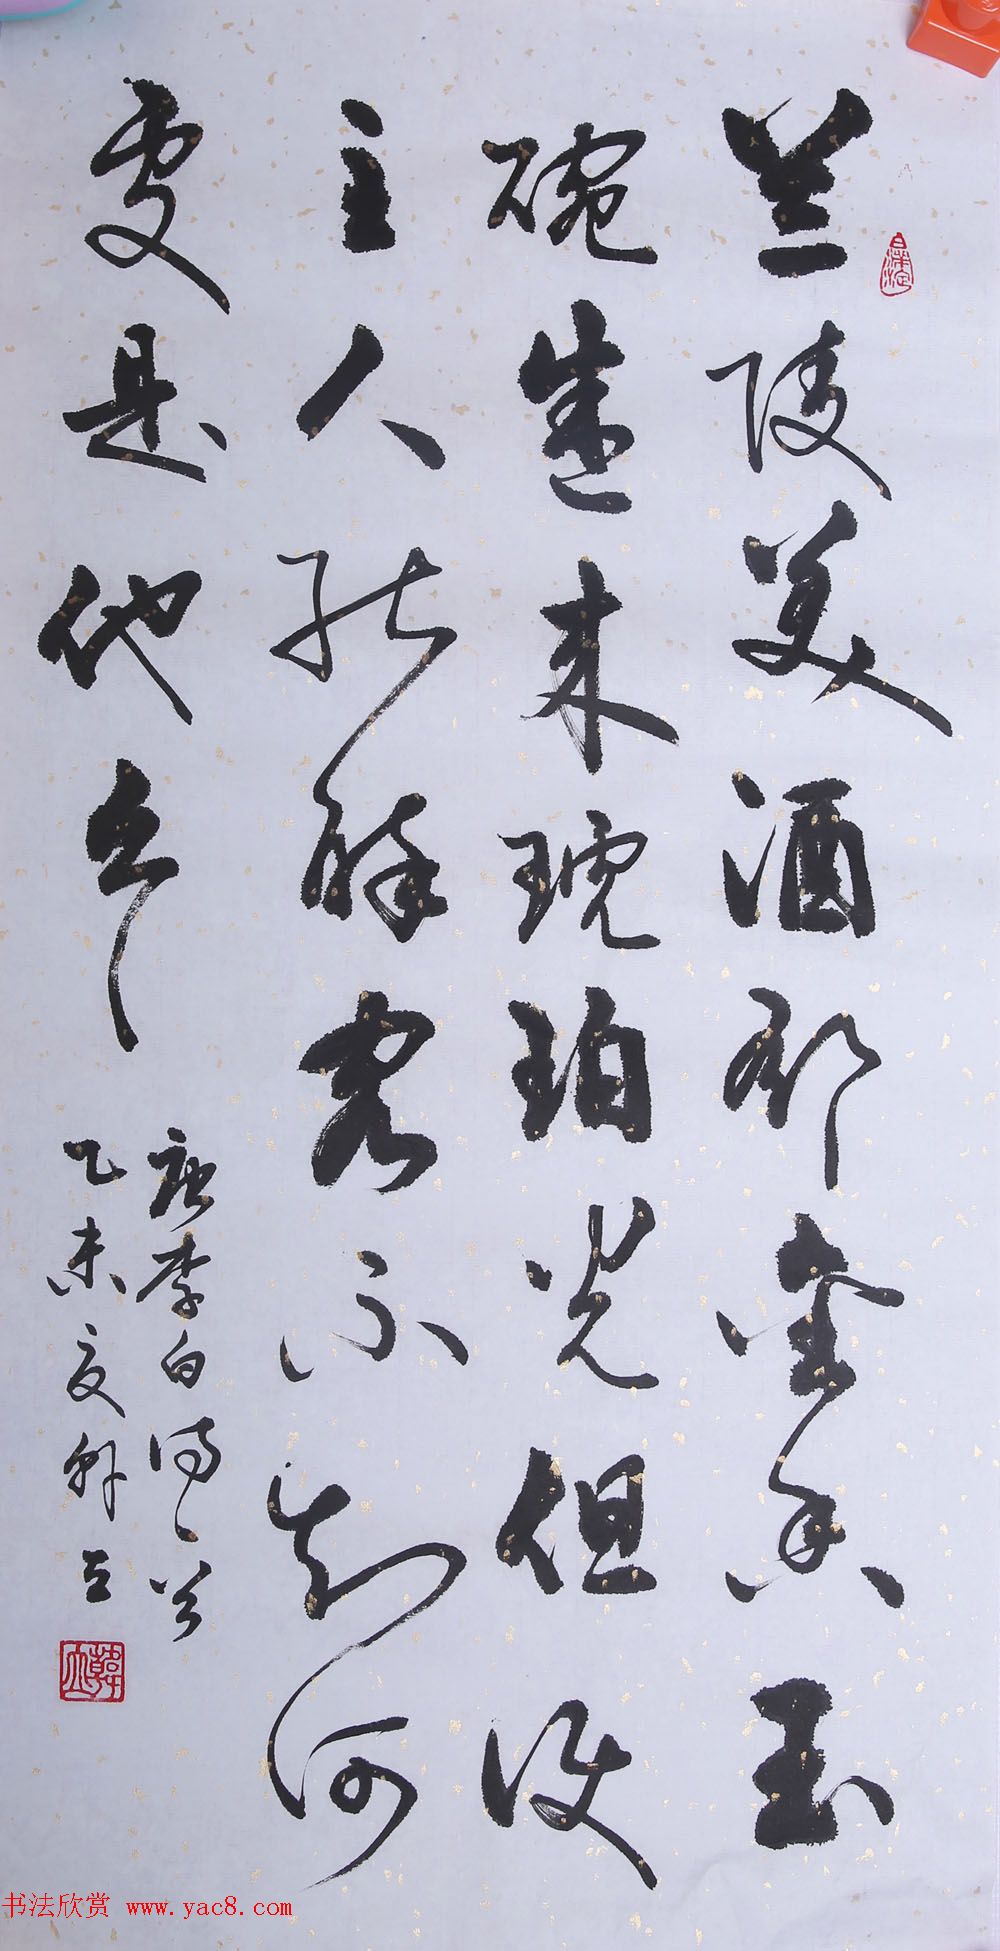 兰陵美酒郁金香玉
碗盛来琥珀光但使
主人能醉客不知何
處是他乡
唐李白诗一首
乙未夏韩立
书法欣赏 www.yac8.com